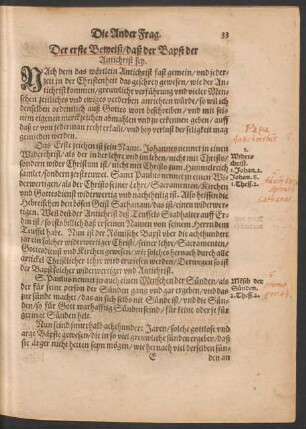 Die Ander Frag. 33
Der erste Beweiß/ daß der Bapst der
Antichrist sey.
NAch dem das wörtlein Antichrist fast gemein/ vnd jeder-
zeit in der Christenheit das geschrey gewesen/ wie der Anti-
christ kommen/ grewliche verführung vnd vieler Men-
schen zeitliches vnd ewiges verderben anrichten würde/ so wil ich
denselben ordenlich auß Gottes wort beschreiben/ vnd mit seinen
eigenen merckzeichen abmahlen vnd zu erkennen geben/ auff
daß er von jederman recht erkañt/ vnd bey verlust der seligkeit mag
gemieden werden.
Das Erste zeichen ist sein Name. Johannes nennet in einen
Widerchrist/ als der in der lehr vnd im leben/ nicht mit Christo/
sondern wider Christum ist/ nicht mit Christo zum Himmelreich
samlet/ sondern zerstrewet. Sanct Paulus nennet in einen
Widerwertigen/ als der Christo/ seiner Lehr/ Sacramenten/ Kirchen
vnd Gottesdienst widerwertig vnd nachtheilig ist. Also heissen die
Hebreischen den bösen Geist Sathanam/ das ist/ einen Widerwer-
tigen. Weil deñ der Antichrist deß Teuffels Stadhalter auff Erden
ist/ so ists billich/ daß er seinen Namen von seinem Herrn dem
Teuffel habe. Nun ist der Römische Bapst vber die achthundert
Jar ein solcher widerwertiger Christo/ seiner Lehr/ Sacramenten/
Gottesdiensts vnd Kirchen gewesen/ wie solches hernach durch alle
Artickel Christlicher lehr wird erwiesen werden/ Derwegen so ist
der Bapst solcher widerwertiger vnd Antichrist.
S. Paulus nennet jn auch einen Menschen der Sünden/ als
der für seine person der Sünden gantz vnd gar ergeben/ vnd das
zur sünde machet/ das an sich selbs nit Sünde ist/ vnd die Sün-
den/ so für Gott warhafftig Sünden seind/ für keine oder je für
geringe Sünden helt.
Nun seind innerhalb achthundert Jaren/ solche gottlose vnd
arge Bäpste gewesen/ die in so viel grewliche sünden ergeben/ daß
sie ärger nicht hetten seyn mögen/ wie hernach viel derselben sün-
E den an
Papa
Antichristus
1.
Wider-
christ.
1. Johan. 2.
2. Johan.
2. Thess. 2.
Sathanas
Mesch der
Sünden.
2. Thess. 2.
Homo